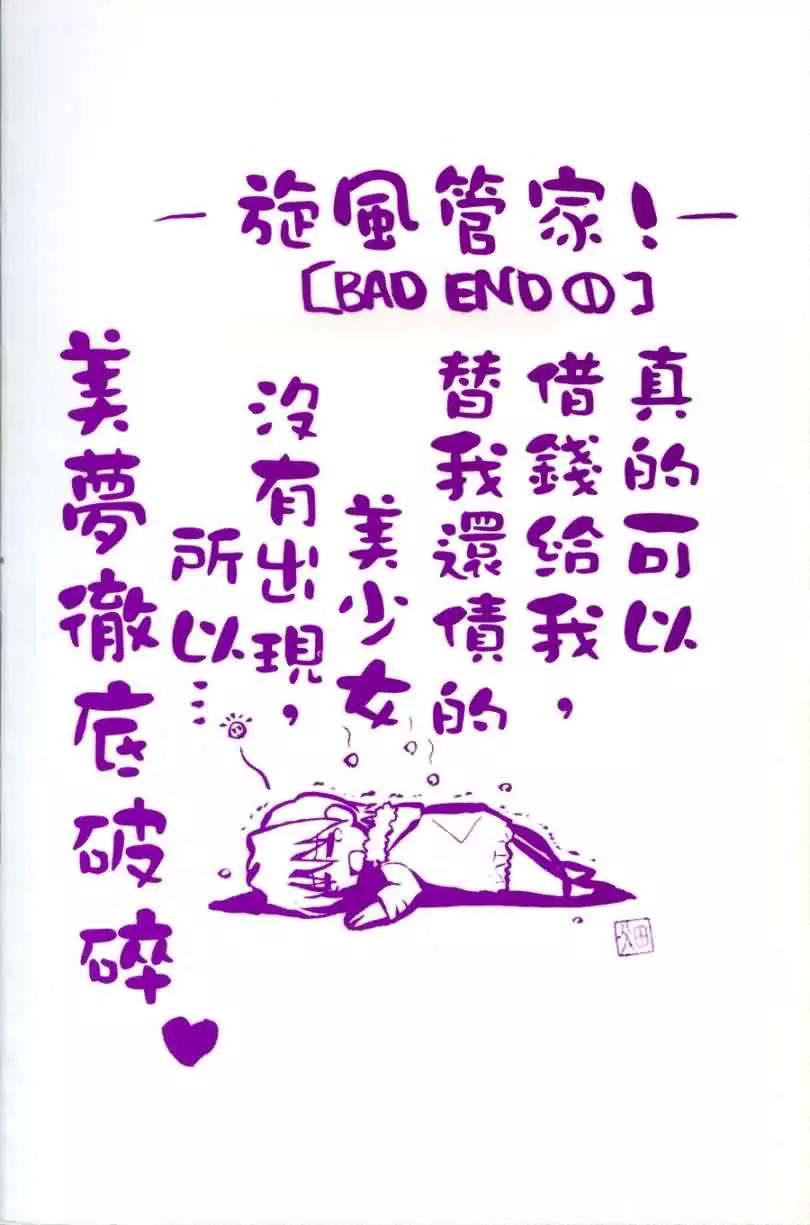 —旋風管家!—
[BAD END①]
真的可以
借錢給我,
替我還債的
美少女
沒有出現,
所以…
美夢徹底破碎♥
畑